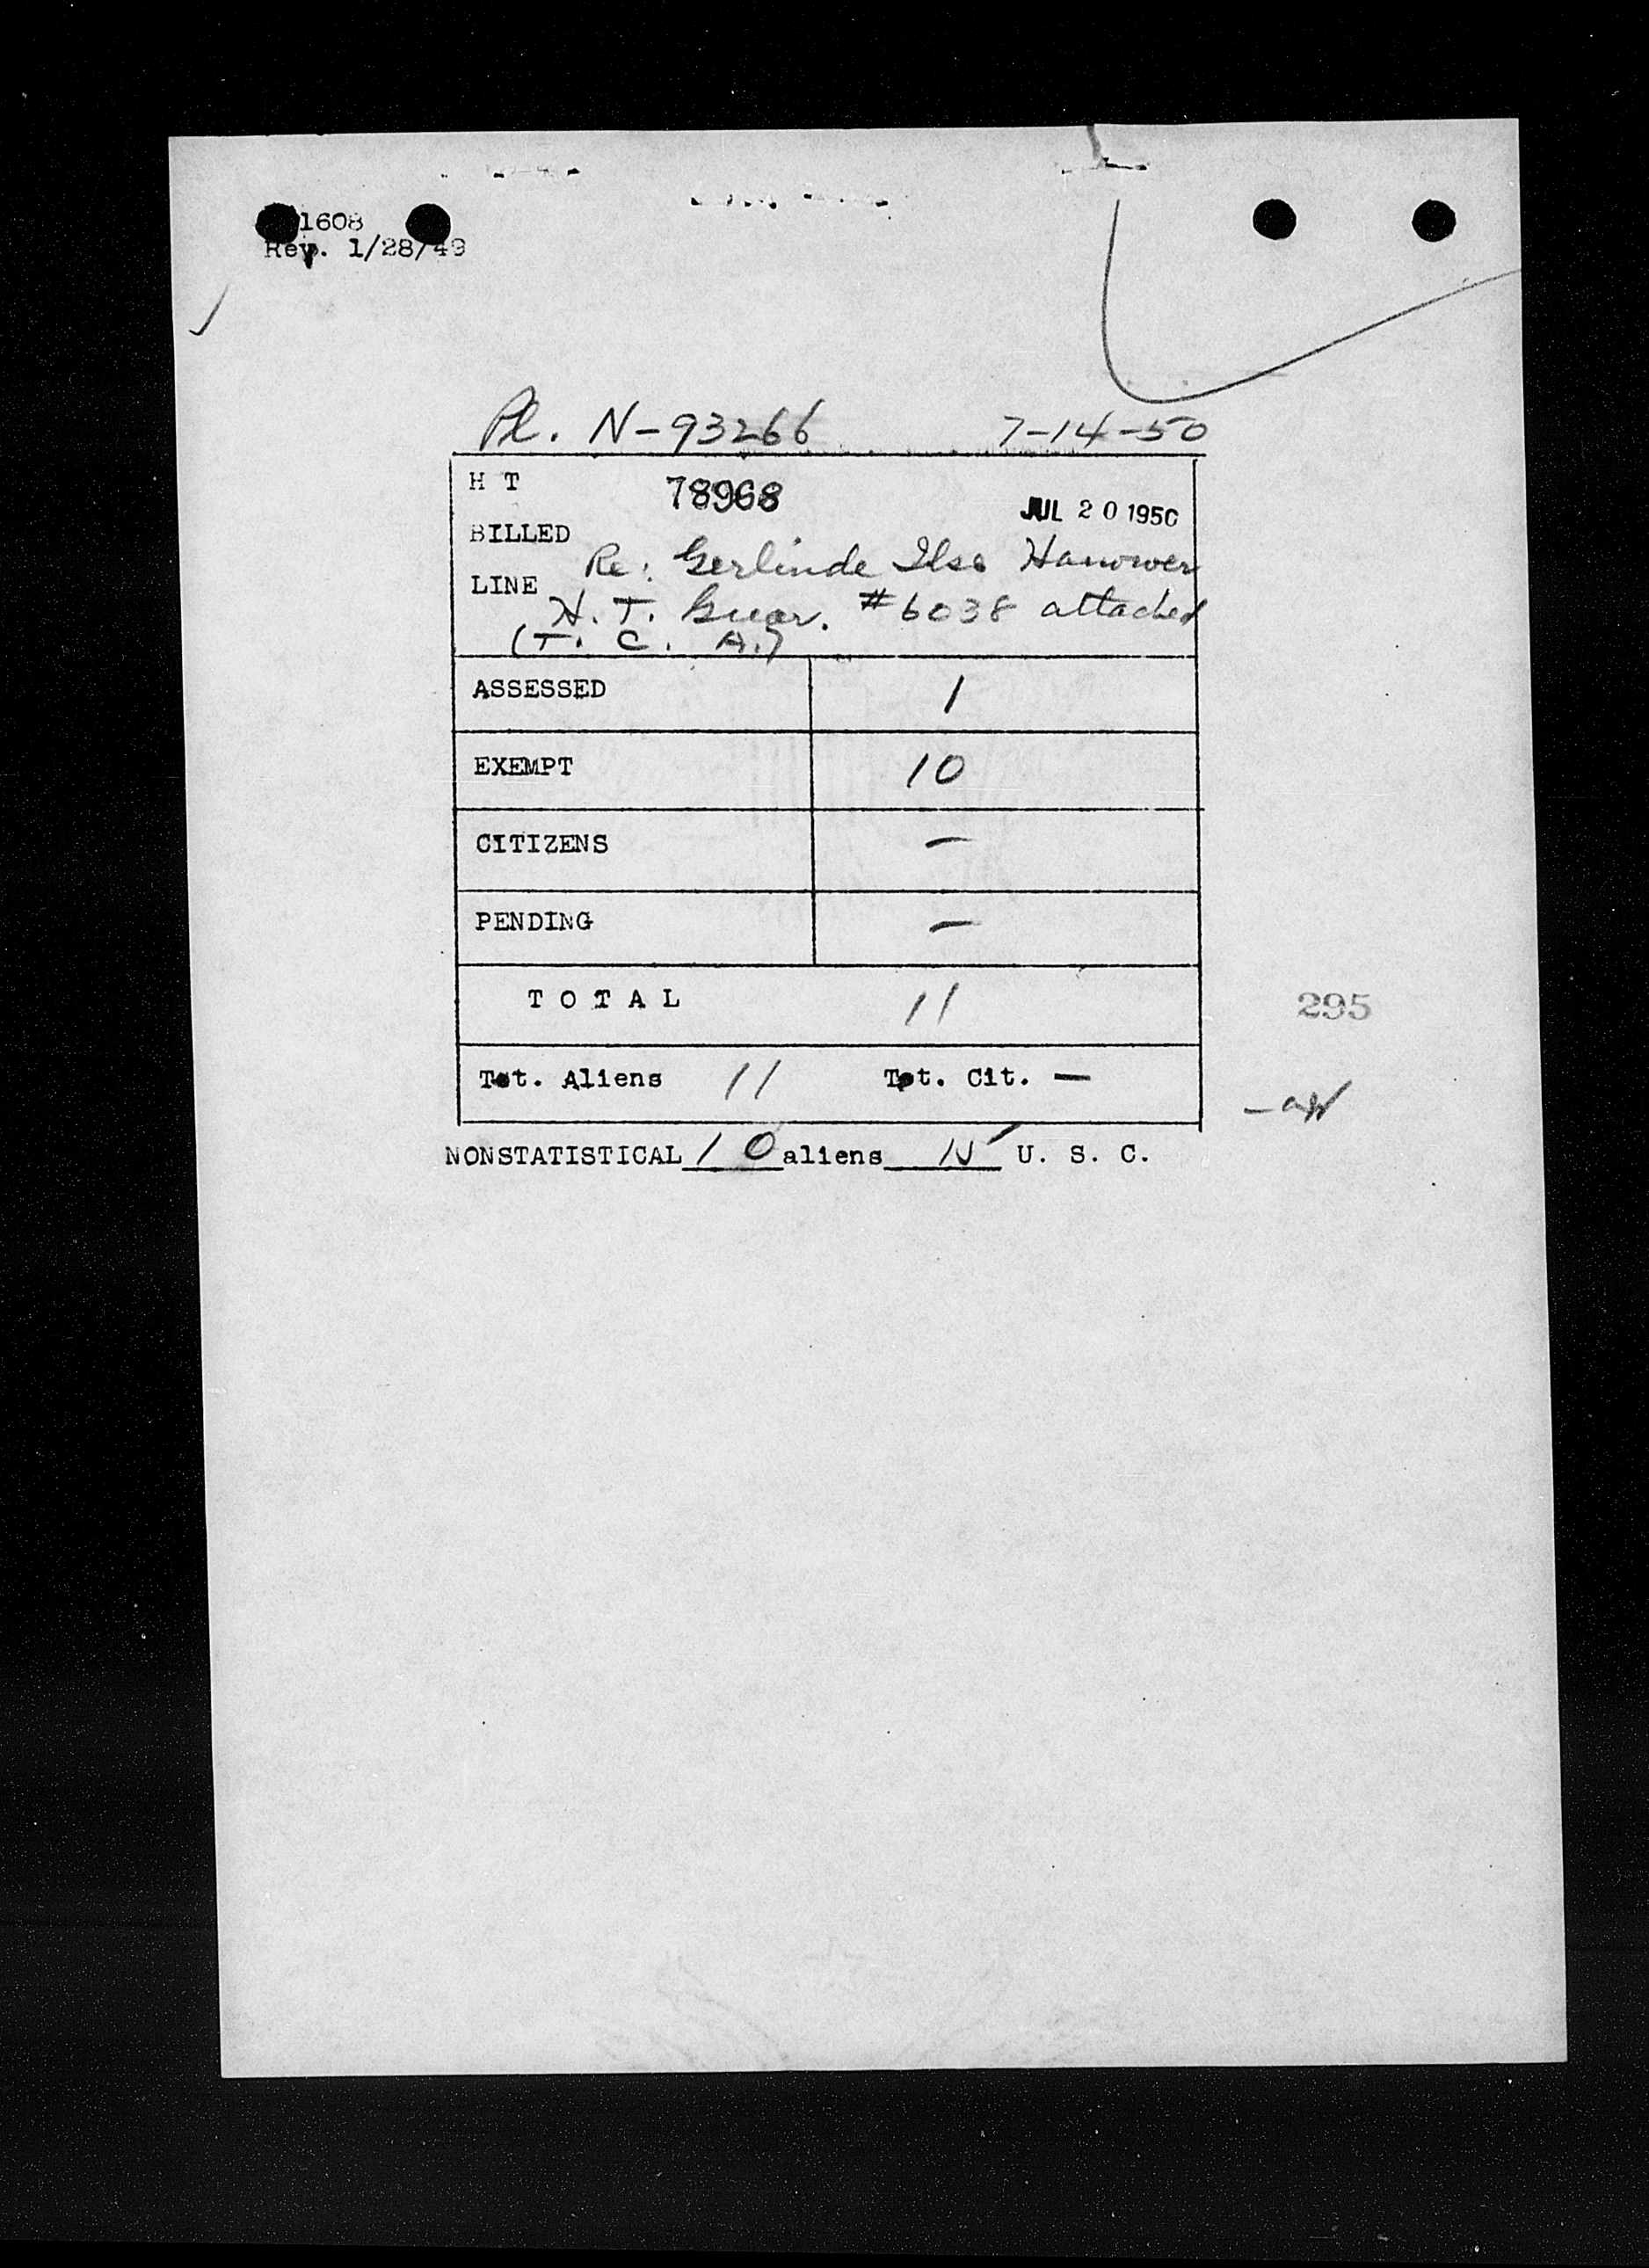 1608
Rev. 1/28/49
Pl. N-93266 7-14-50
H T 78968 JUL 20 1950
BILLED
Re: Gerlinde Ilse Hanower
LINE
H. T. Guar. #6038 attached
(T. C. A.)
ASSESSED 1
EXEMPT 10
CITIZENS —
PENDING —
TOTAL 11
295
Tot. Aliens 11 Tot. Cit. —
NONSTATISTICAL 10 aliens U. S. C.